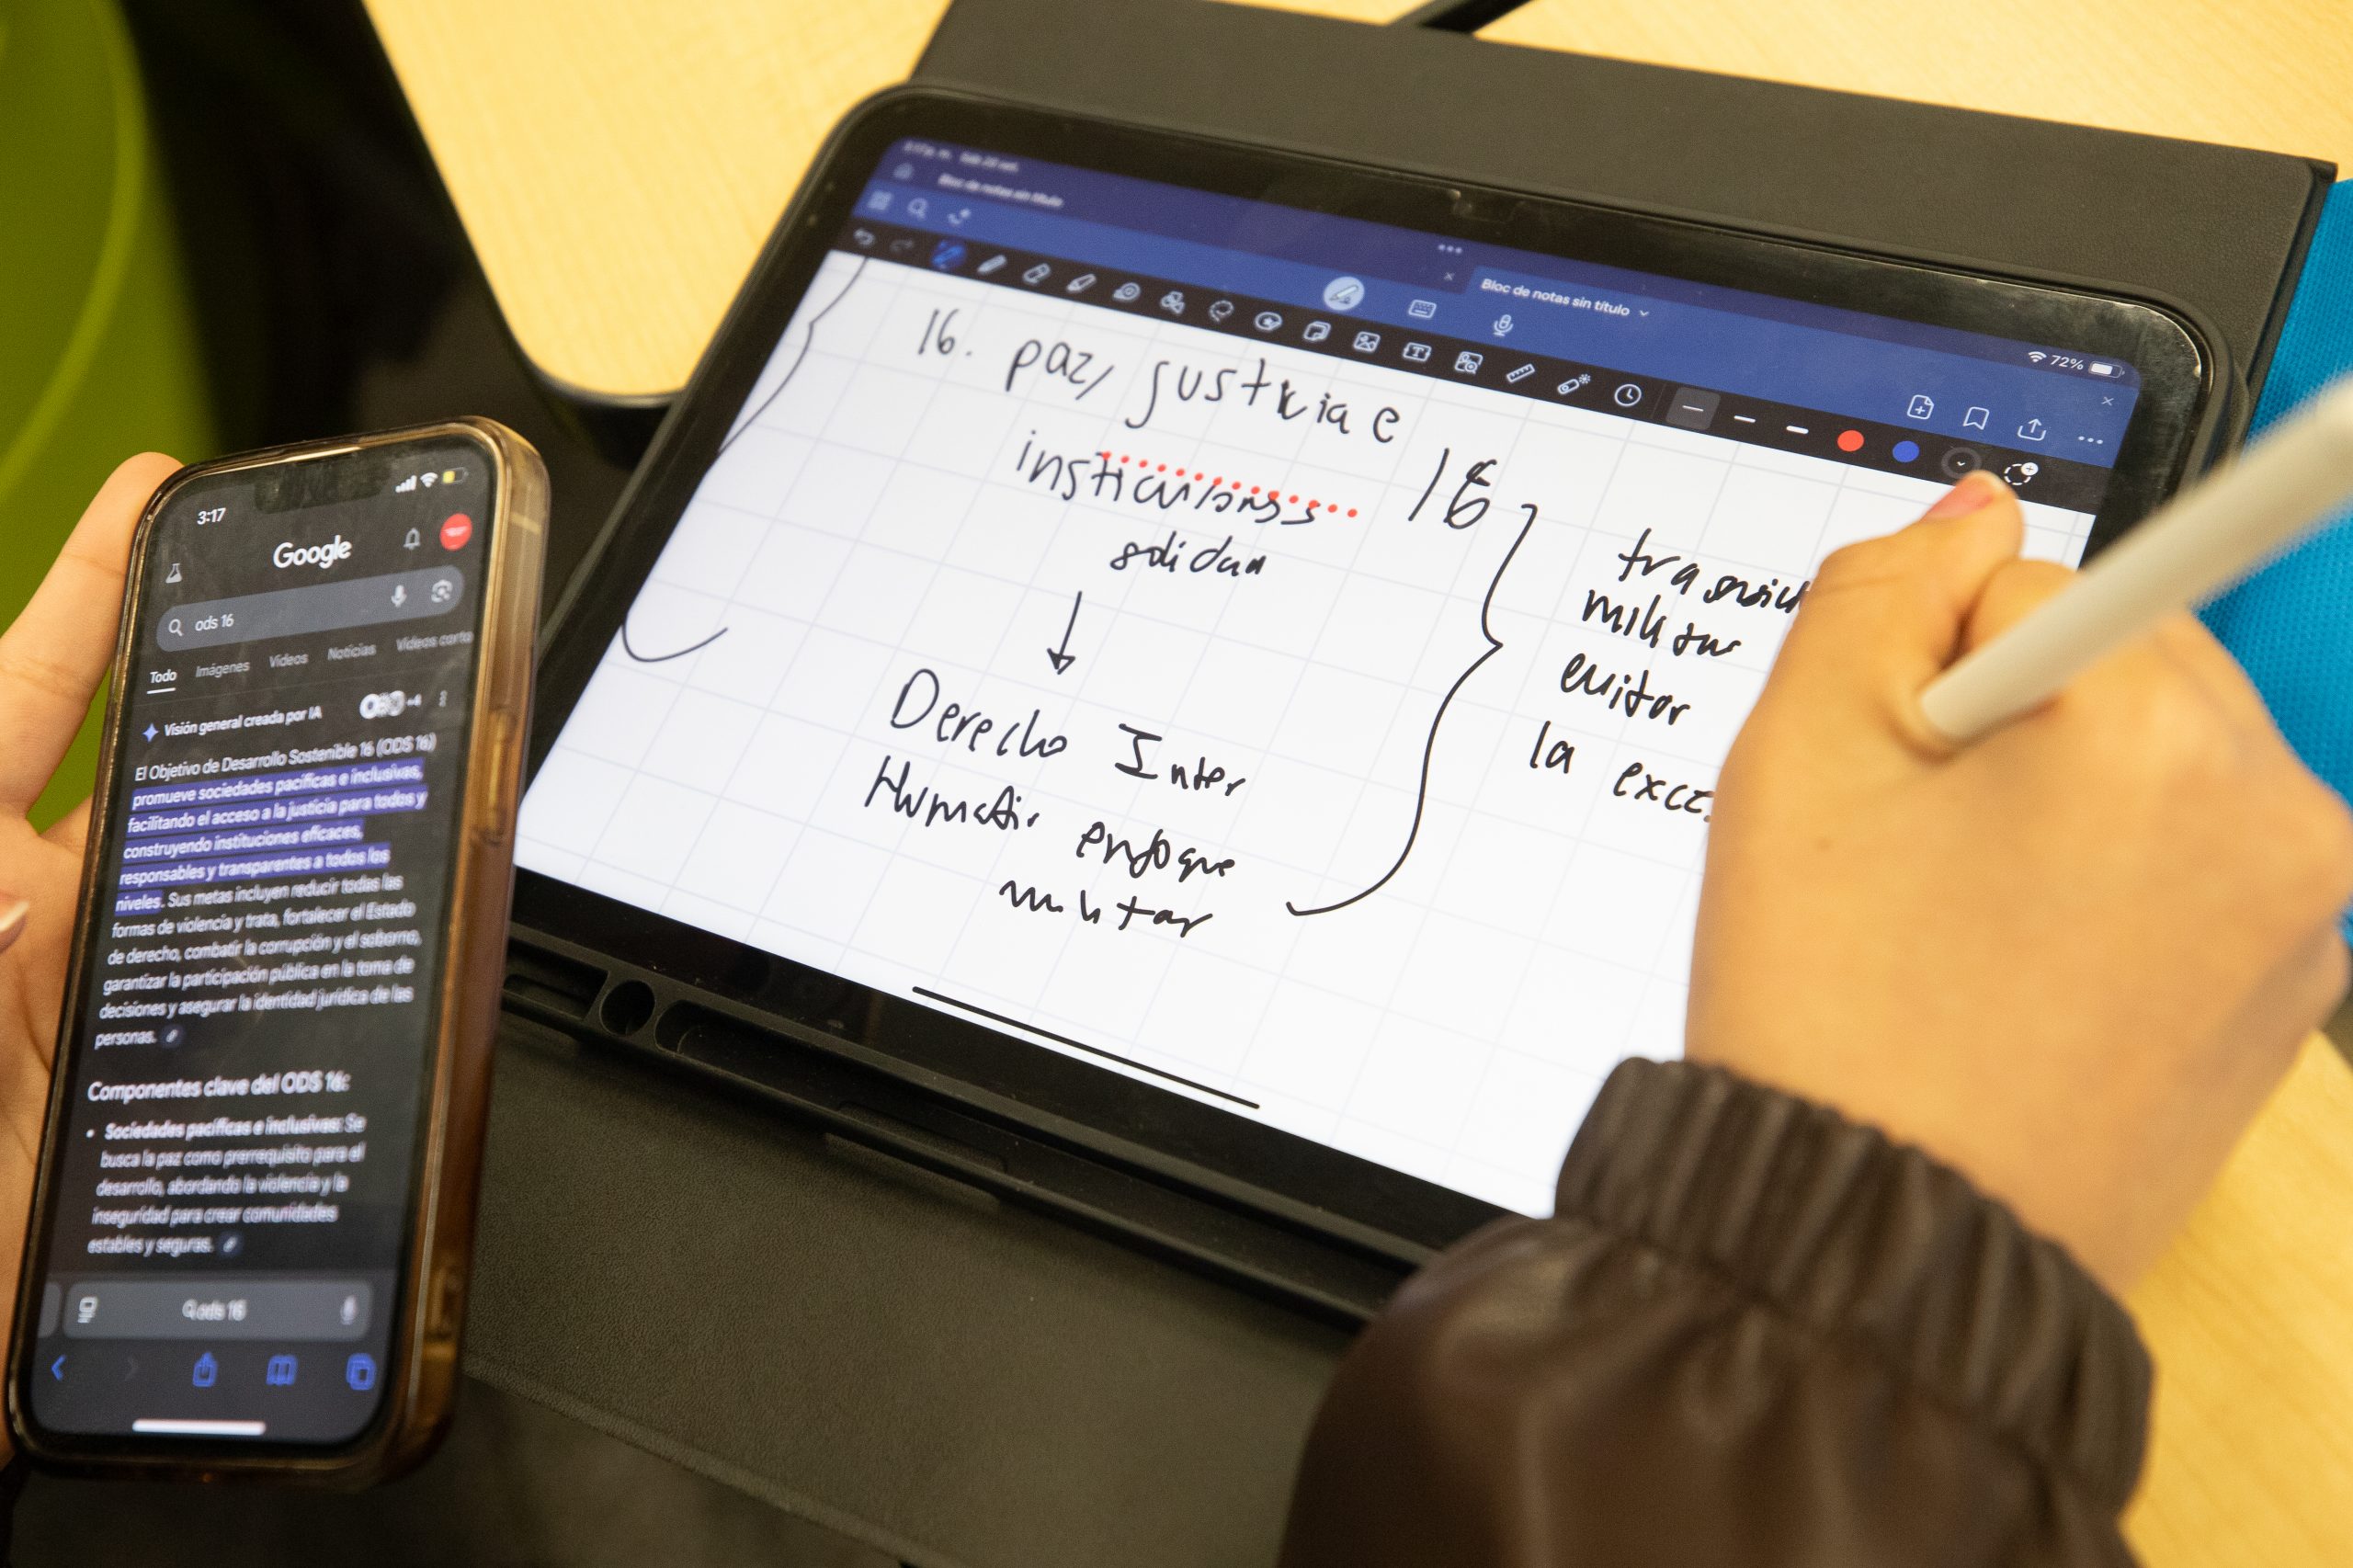 3:17
Google
ods 16
Todo Imágenes Videos Noticias Videos corto
Visión general creada por IA
+4
El Objetivo de Desarrollo Sostenible 16 (ODS 16)
promueve sociedades pacíficas e inclusivas,
facilitando el acceso a la justicia para todos y
construyendo instituciones eficaces,
responsables y transparentes a todos los
niveles. Sus metas incluyen reducir todas las
formas de violencia y trata, fortalecer el Estado
de derecho, combatir la corrupción y el soborno,
garantizar la participación pública en la toma de
decisiones y asegurar la identidad jurídica de las
personas.
Componentes clave del ODS 16:
• Sociedades pacíficas e inclusivas: Se
busca la paz como prerrequisito para el
desarrollo, abordando la violencia y la
inseguridad para crear comunidades
estables y seguras.
ods 16
Bloc de notas sin título
Bloc de notas sin título
72%
16. paz, justicia e
solidad
↓
Derecho Inter
enfoque
militar
16
militar
evitar
la